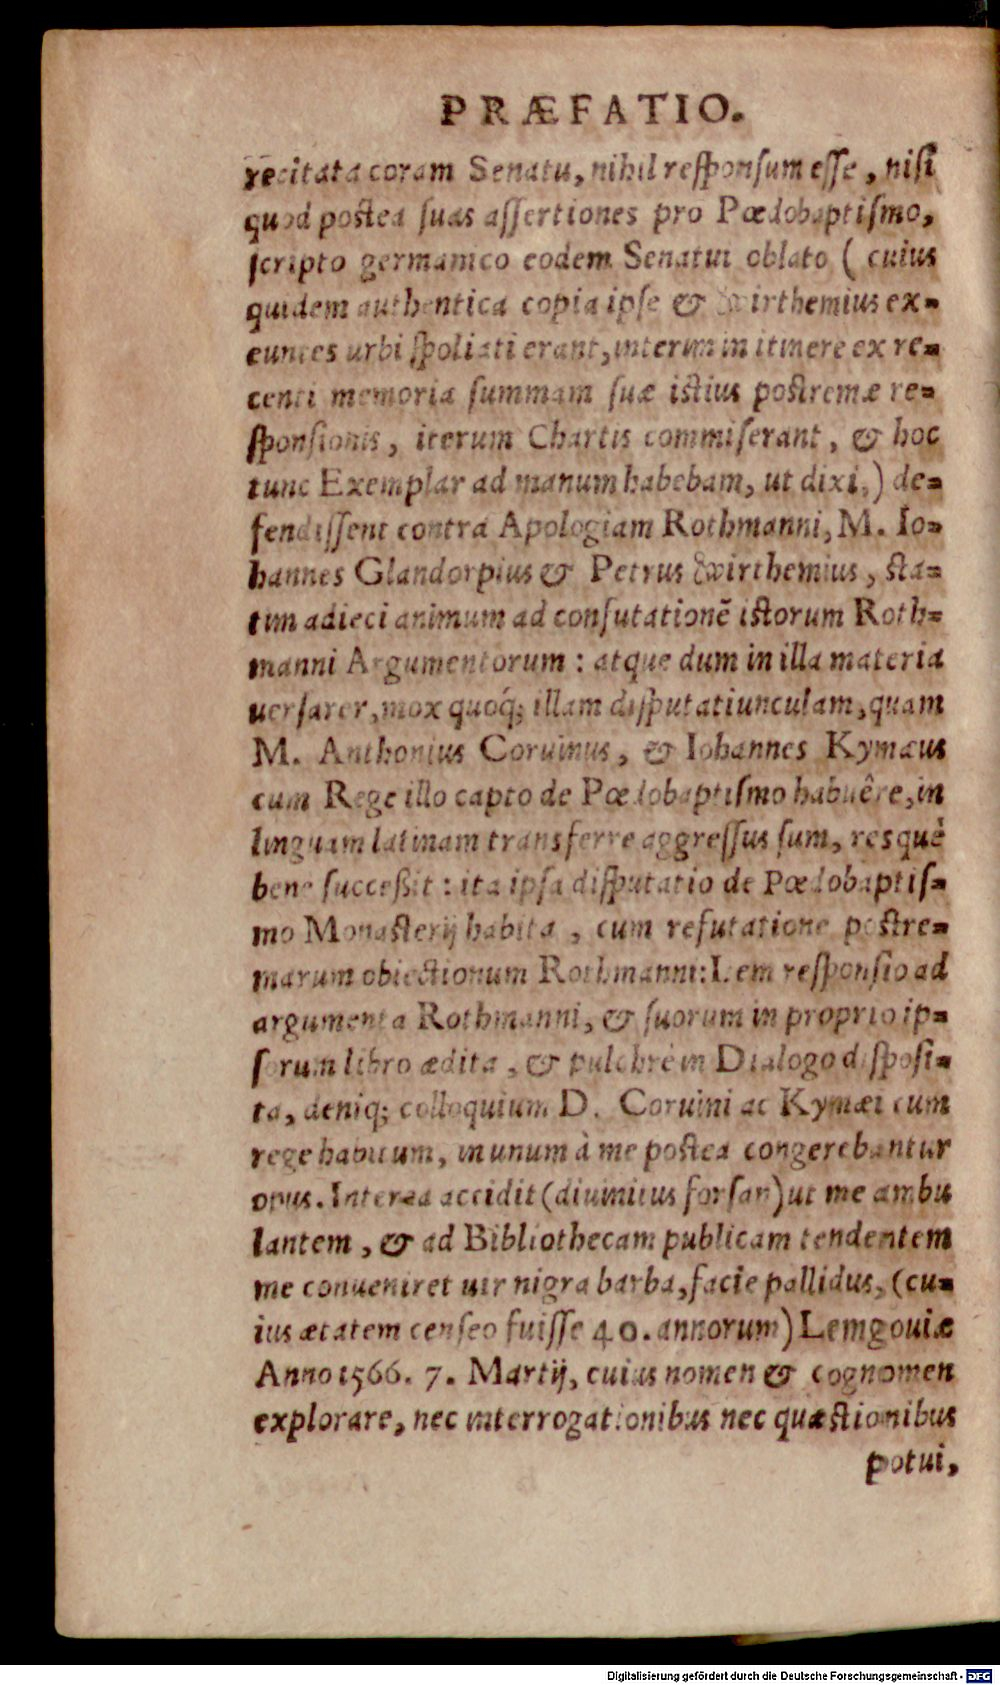 PRÆFATIO.
recitata coram Senatu, nihil responsum esse, nisi
quod postea suas assertiones pro Pœdobaptismo,
scripto germanico eodem Senatui oblato ( cuius
quidem authentica copia ipse & Wirthemius ex-
euntes urbi spoliati erant, interim in itinere ex re-
centi memoria summam suæ istius postremæ re-
sponsionis, iterum Chartis commiserant, & hoc
tunc Exemplar ad manum habebam, ut dixi,) de-
fendissent contra Apologiam Rothmanni, M. Io-
hannes Glandorpius & Petrus Wirthemius, sta-
tim adieci animum ad confutationē istorum Roth-
manni Argumentorum : atque dum in illa materia
uersarer, mox quoq́; illam disputatiunculam, quam
M. Anthonius Coruinus, & Iohannes Kymæus
cum Rege illo capto de Pœdobaptismo habuêre, in
linguam latinam transferre aggressus sum, resquè
bene succeßit : ita ipsa disputatio de Pœdobaptis-
mo Monasterij habita , cum refutatione postre-
marum obiectionum Rothmanni: Item responsio ad
argumenta Rothmanni, & suorum in proprio ip-
sorum libro ædita , & pulchrè in Dialogo disposi-
ta, deniq; colloquium D. Coruini ac Kymæi cum
rege habitum, in unum à me postea congerebantur
opus. Interea accidit (diuinitus forsan) ut me ambu
lantem , & ad Bibliothecam publicam tendentem
me conueniret uir nigra barba, facie pallidus, (cu-
ius ætatem censeo fuisse 40. annorum) Lemgouiæ
Anno 1566. 7. Martij, cuius nomen & cognomen
explorare, nec interrogationibus nec quæstionibus
potui,
Digitalisierung gefördert durch die Deutsche Forschungsgemeinschaft - DFG